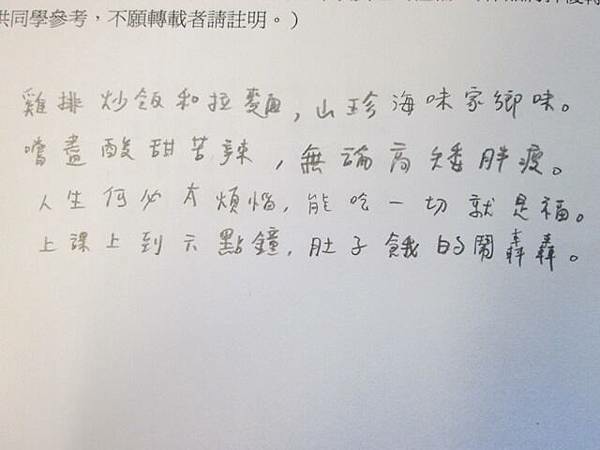 供同學參考，不願轉載者請註明。）
雞排炒飯和拉麵，山珍海味家鄉味。
嚐盡酸甜苦辣，無論高矮胖瘦。
人生何必太煩惱，能吃一切就是福。
上課上到六點鐘，肚子餓的鬧轟轟。